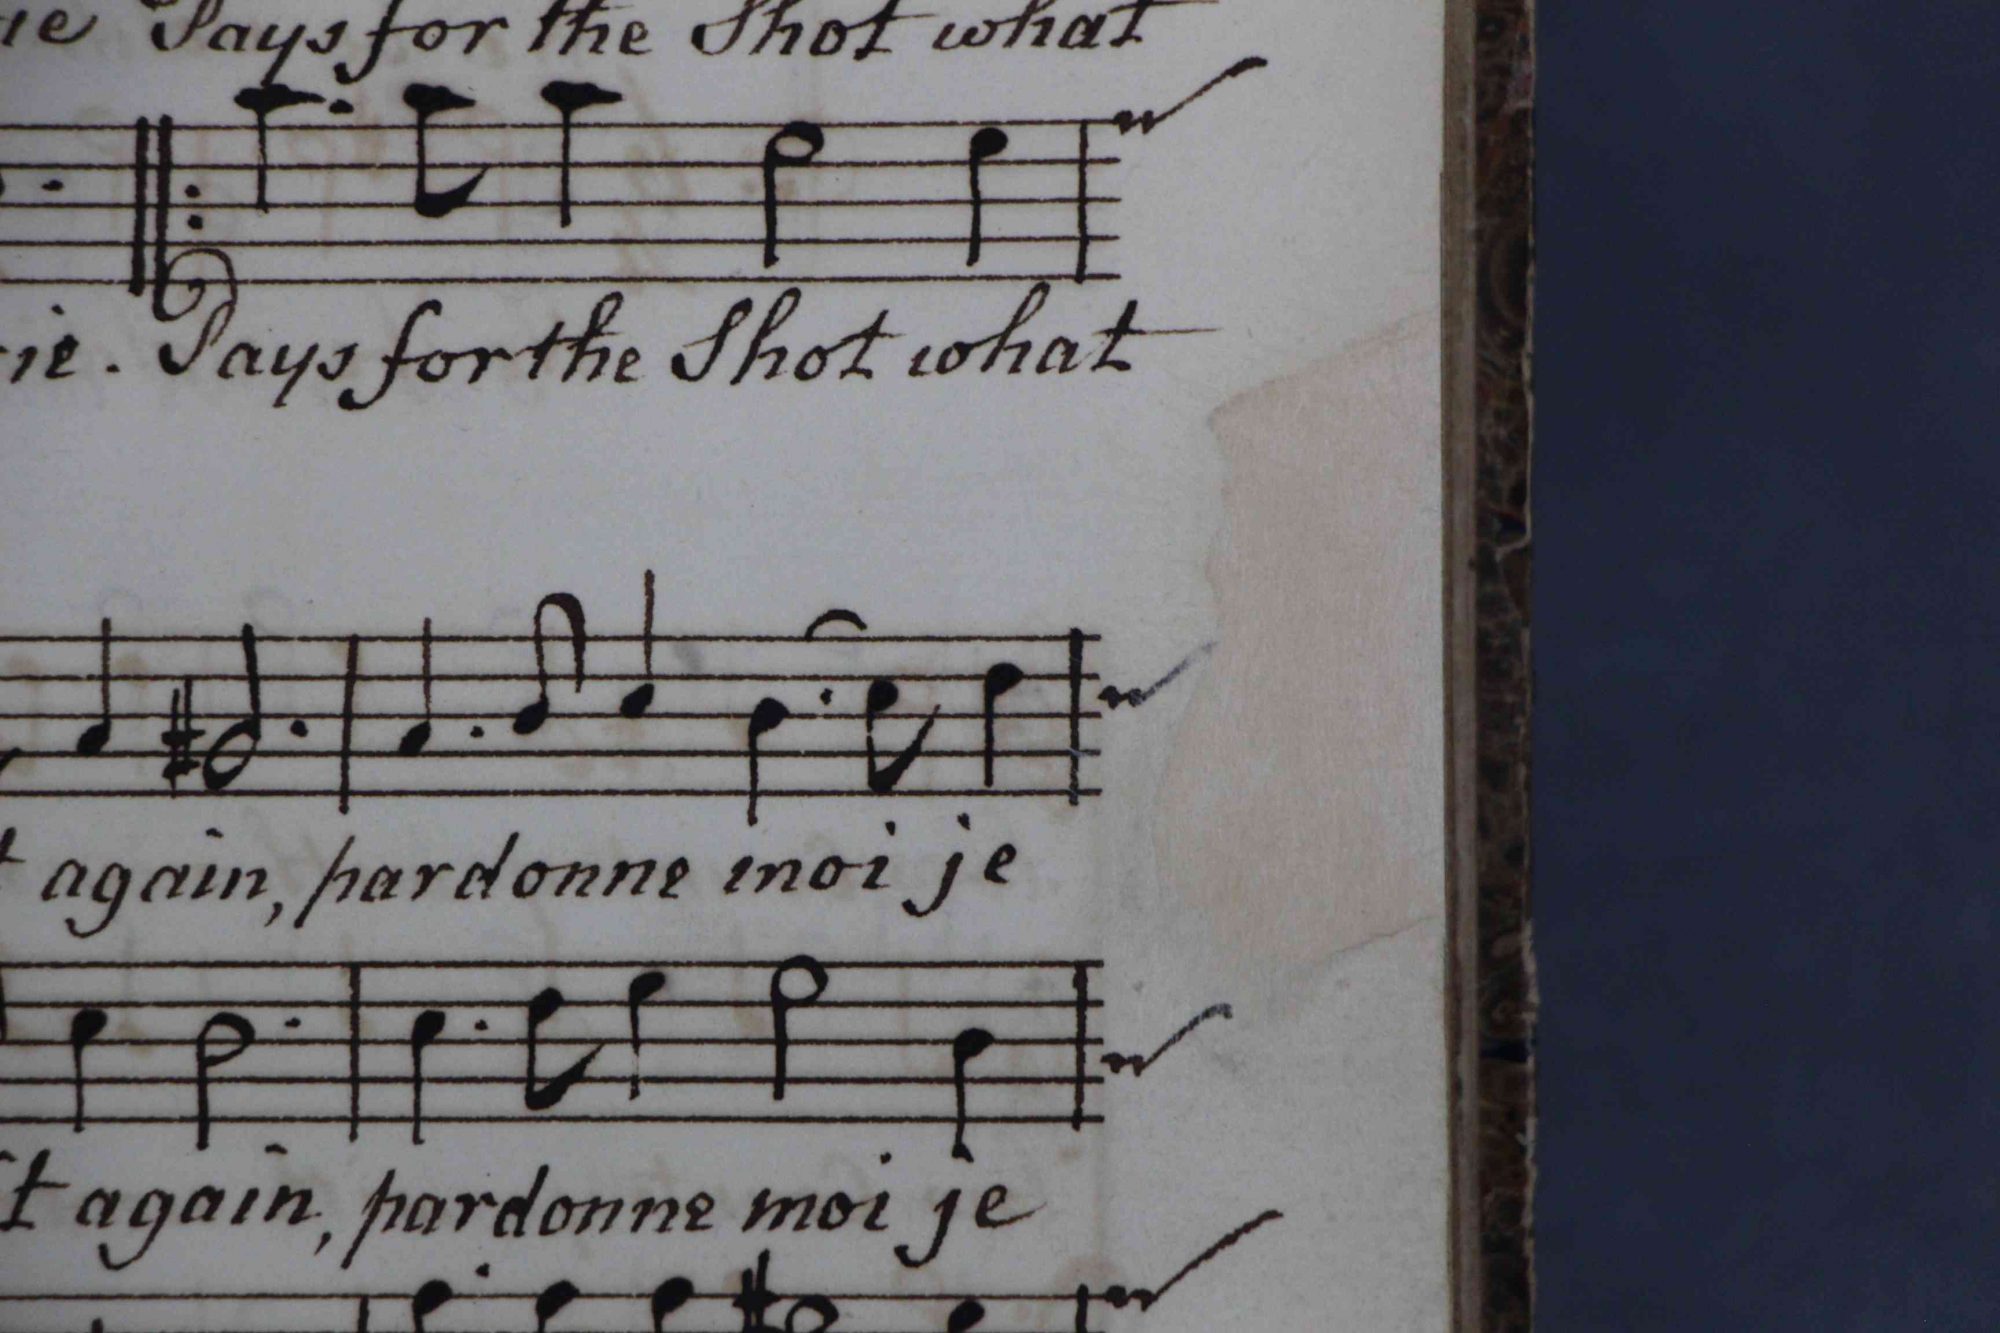 ie Pays for the Shot what
ie. Pays for the Shot what
again, pardonne moi je
again, pardonne moi je